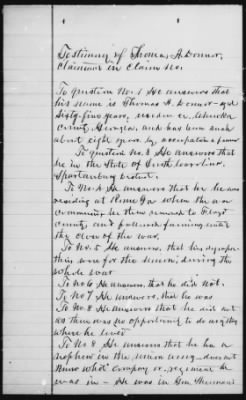 Testimony of Thomas A. Connor,
Claimant in Claim No.
To Question No. 1 He answers that
his name is Thomas A. Connor – aged
Sixty-five years, resides in
County Georgia, and has been such
about eight years, by occupation a farmer
To Question No. 2 He answers that
he in the State of South Carolina,
Spartanburg District.
To No. 4 He answers that he
residing at Rome Ga when the war
commenced he then removed to Floyd
county, and followed farming until
the close of the war.
To No. 5 He answers, that his sympa-
thies were for the union, during the
whole war
To No 6 He answers, that he did not.
To No 7 He answers, that he was
To No. 8 He answers that he did not
as there was no opportunity to do anything
where he lived
To No 9 He answers that he has a
nephew in the union army – doesnt
know what company or regiment he
was in – He was in Gen Sherman's